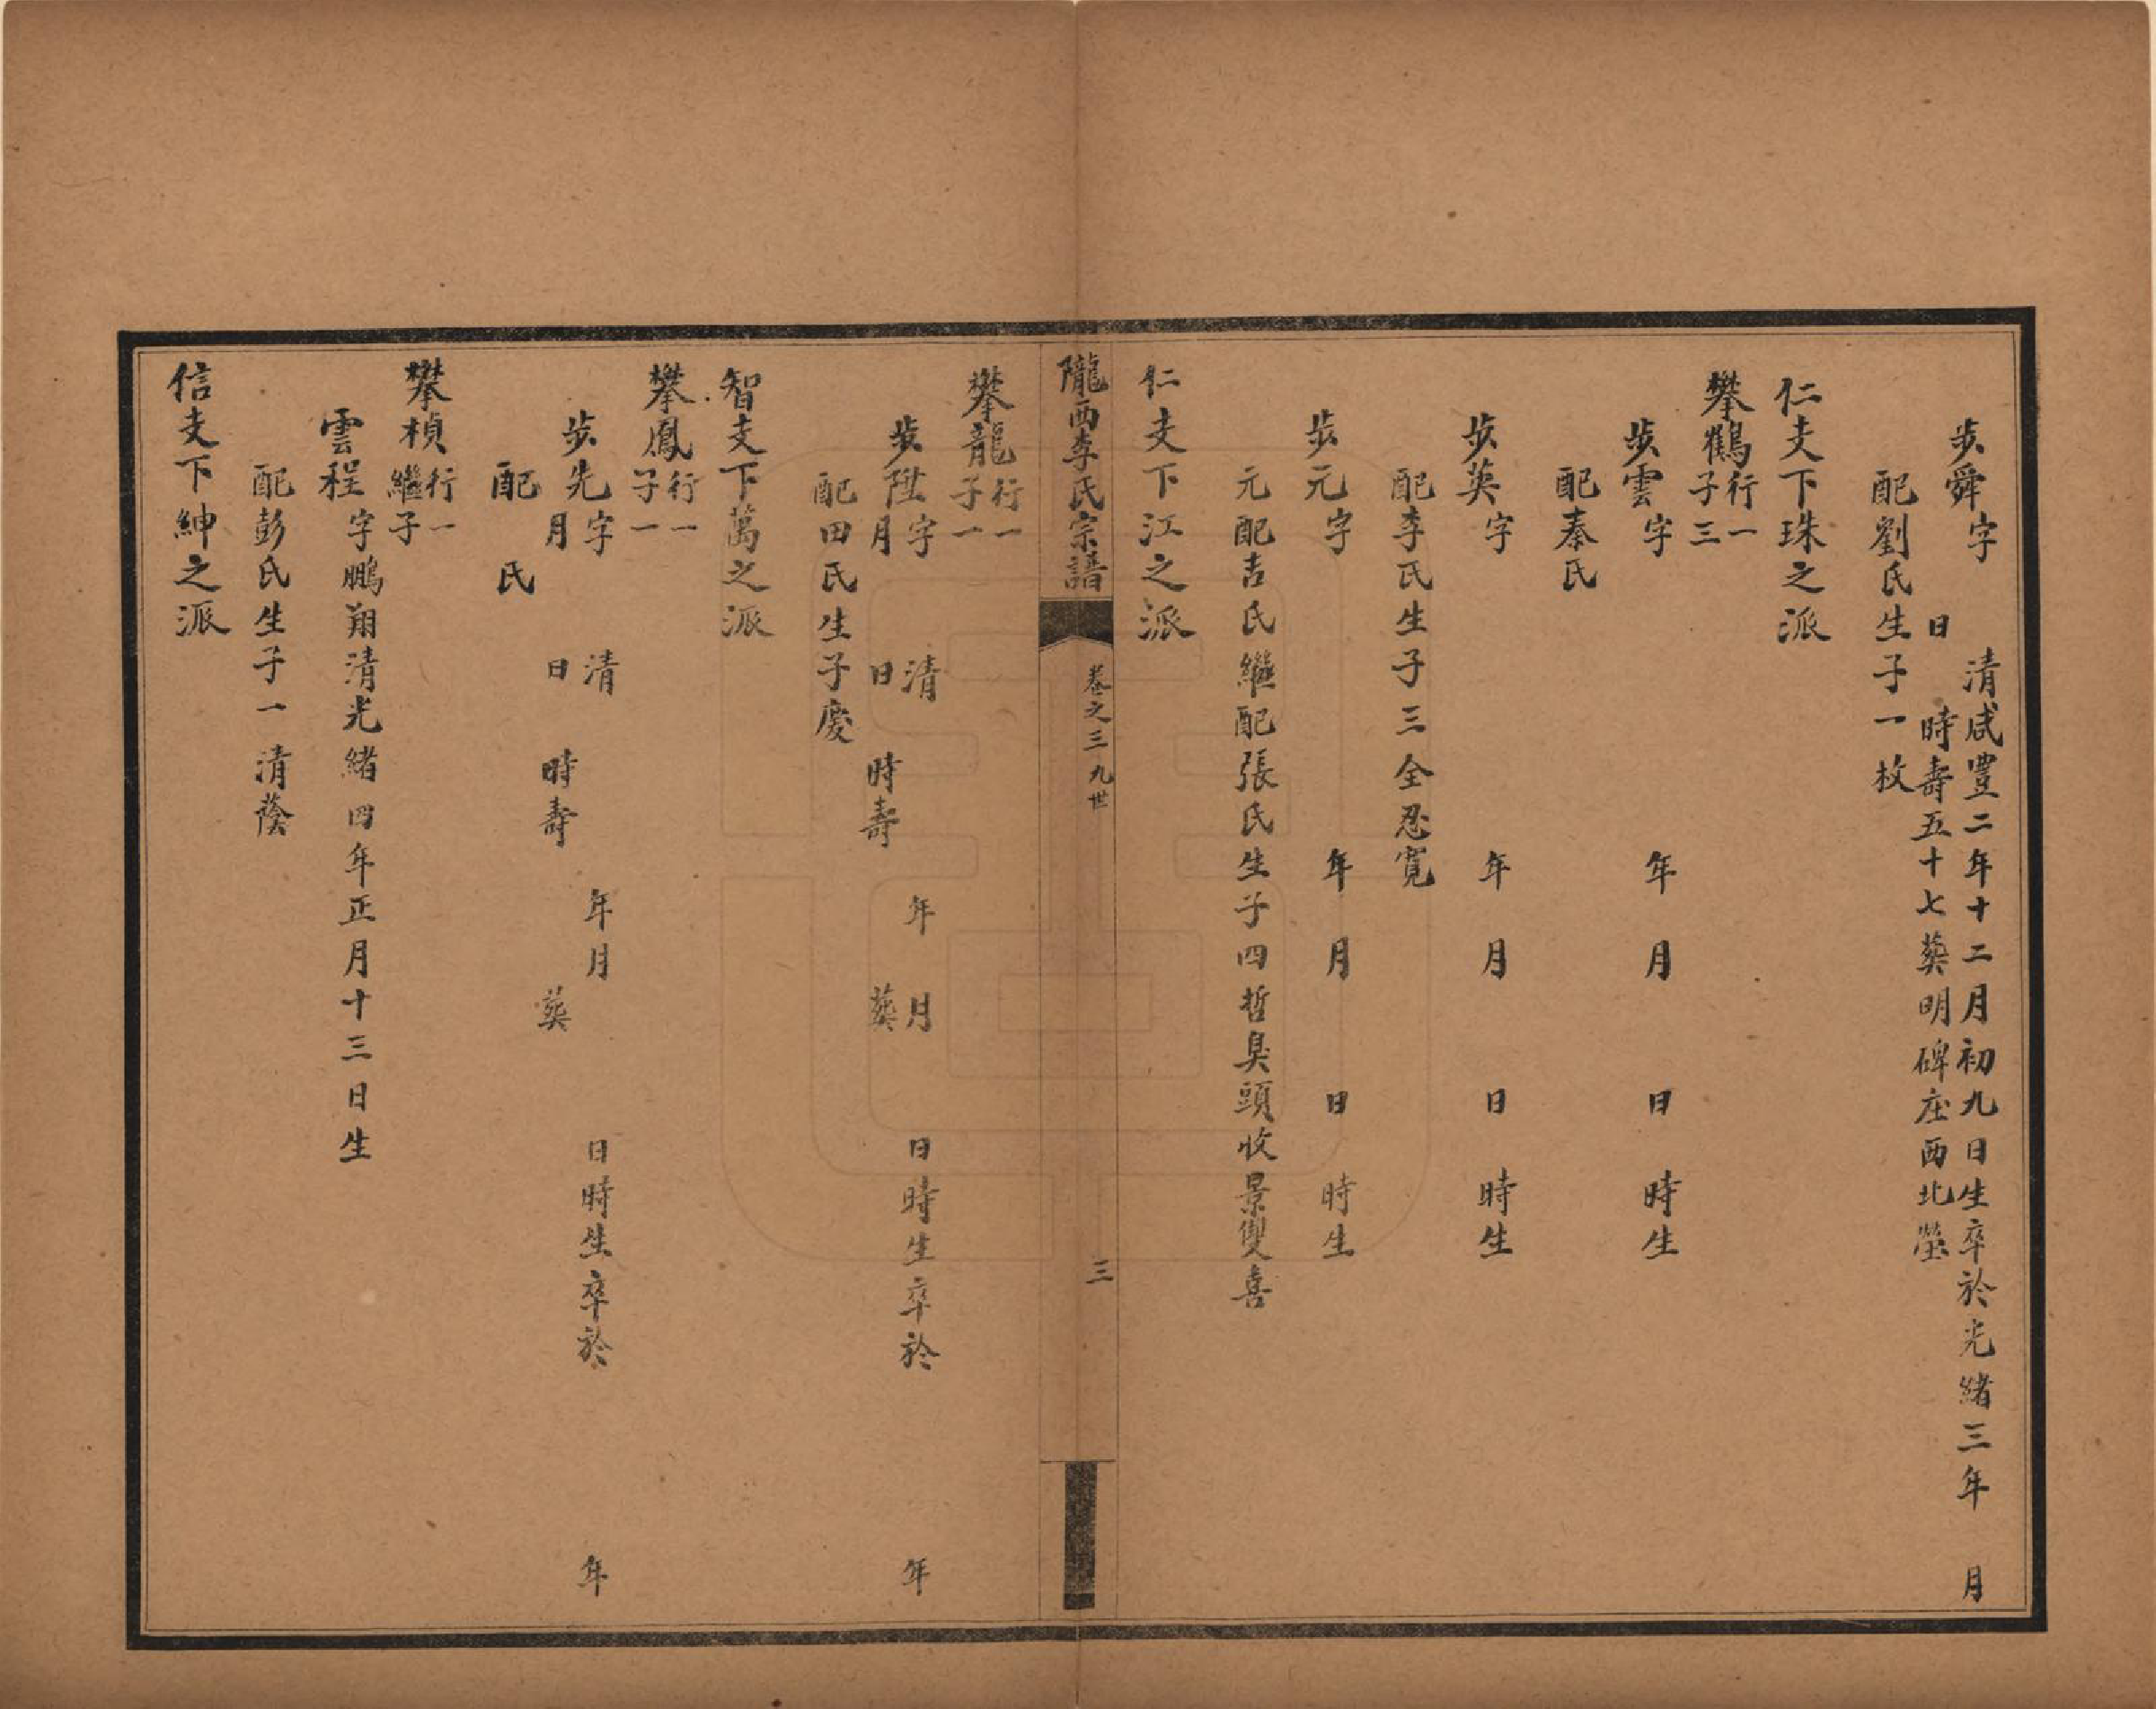 步舜字　清咸豐二年十二月初九日生卒於光緒三年　月
日　時壽五十七葬明碑座西北塋
配劉氏生子一枚
仁支下珠之派
攀鶴行一
子三
步雲字　年　月　日　時生
配秦氏
步英字　年　月　日　時生
配李氏生子三全忍寬
步元字　年　月　日　時生
元配吉氏繼配張氏生子四哲臭頭收景雙喜
仁支下江之派
隴西李氏宗譜　卷之三　九世　三
攀龍行一
子一
步陞字　清　年　月　日時生卒於　年
月　日　時壽　葬
配田氏生子慶
智支下萬之派
攀鳳行一
子一
步先字　清　年　月　日時生卒於　年
月　日　時壽　葬
配　氏
攀楨行一
繼子
雲程字鵬翔清光緒四年正月十三日生
配彭氏生子一清蔭
信支下紳之派